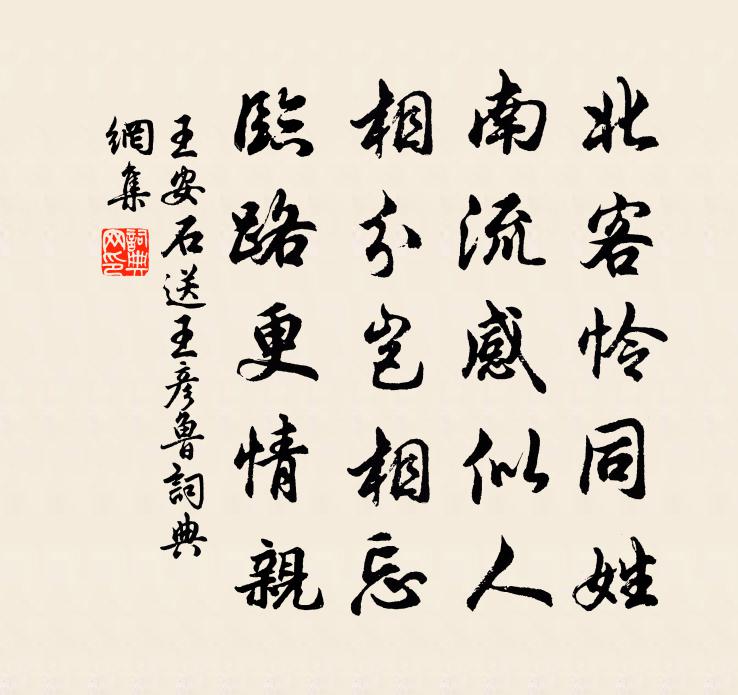 北客怜同姓
南流感似人
相分岂相忘
臨路更情親
王安石送王彦魯詞典
網集
詞典
网印